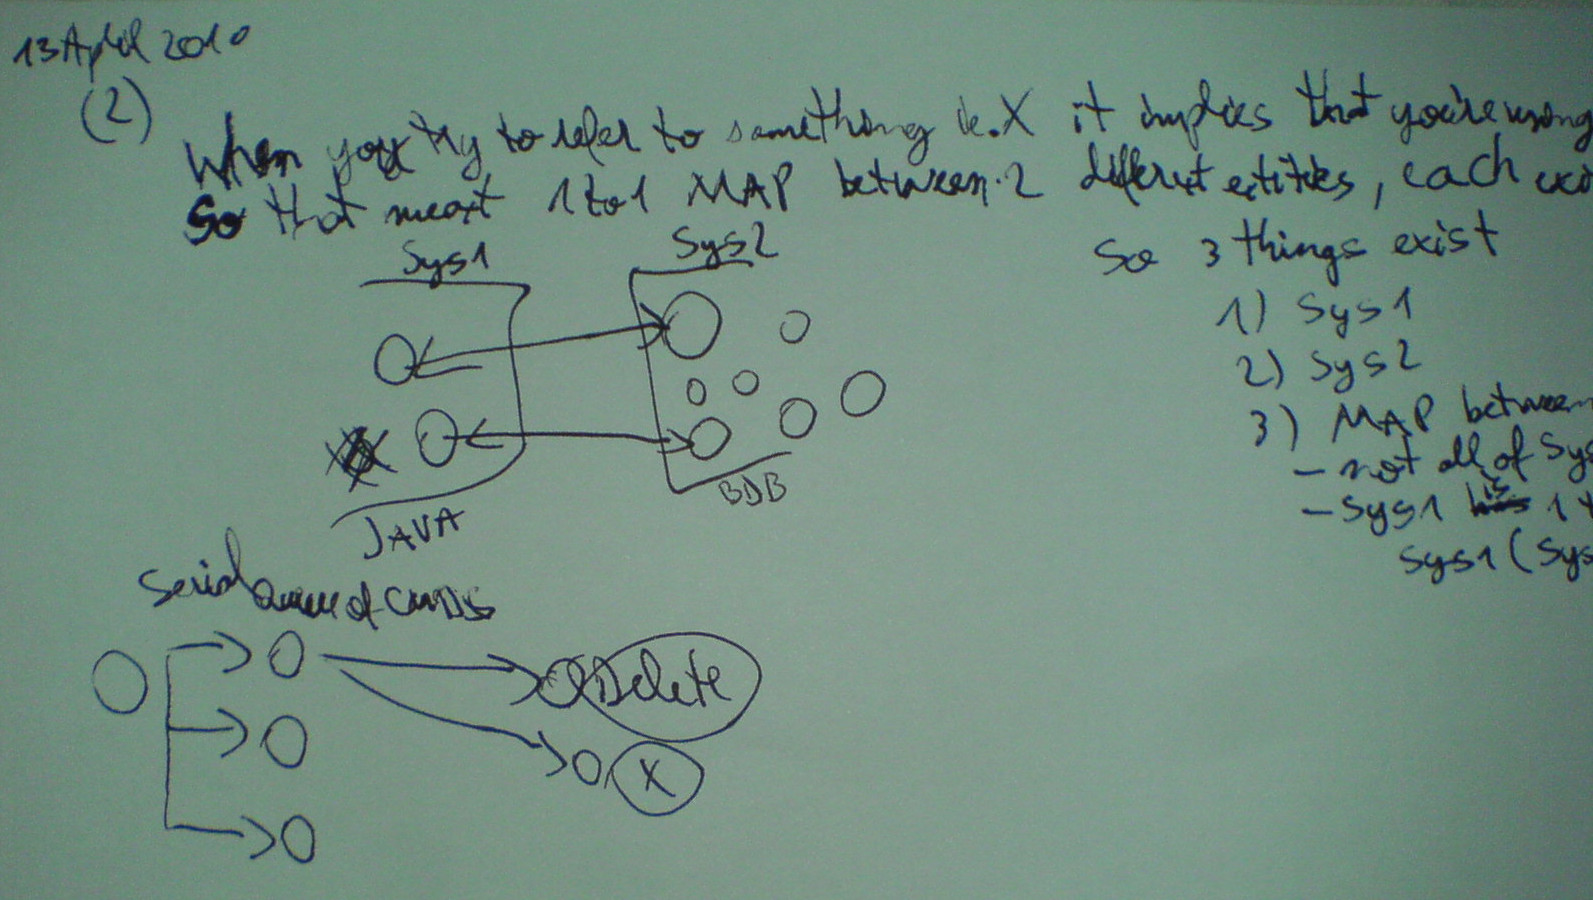 13 April 2010
(2)
When you try to refer to something ie. X it implies that you're using
So that meant 1 to 1 MAP between 2 different entities, each
Sys1
Sys2
So 3 things exist
1) Sys1
2) Sys2
3) MAP between
- not all of Sys
- Sys1 is 1
Sys1 (Sys
BDB
JAVA
Serial Queue of CMDs
Delete
X